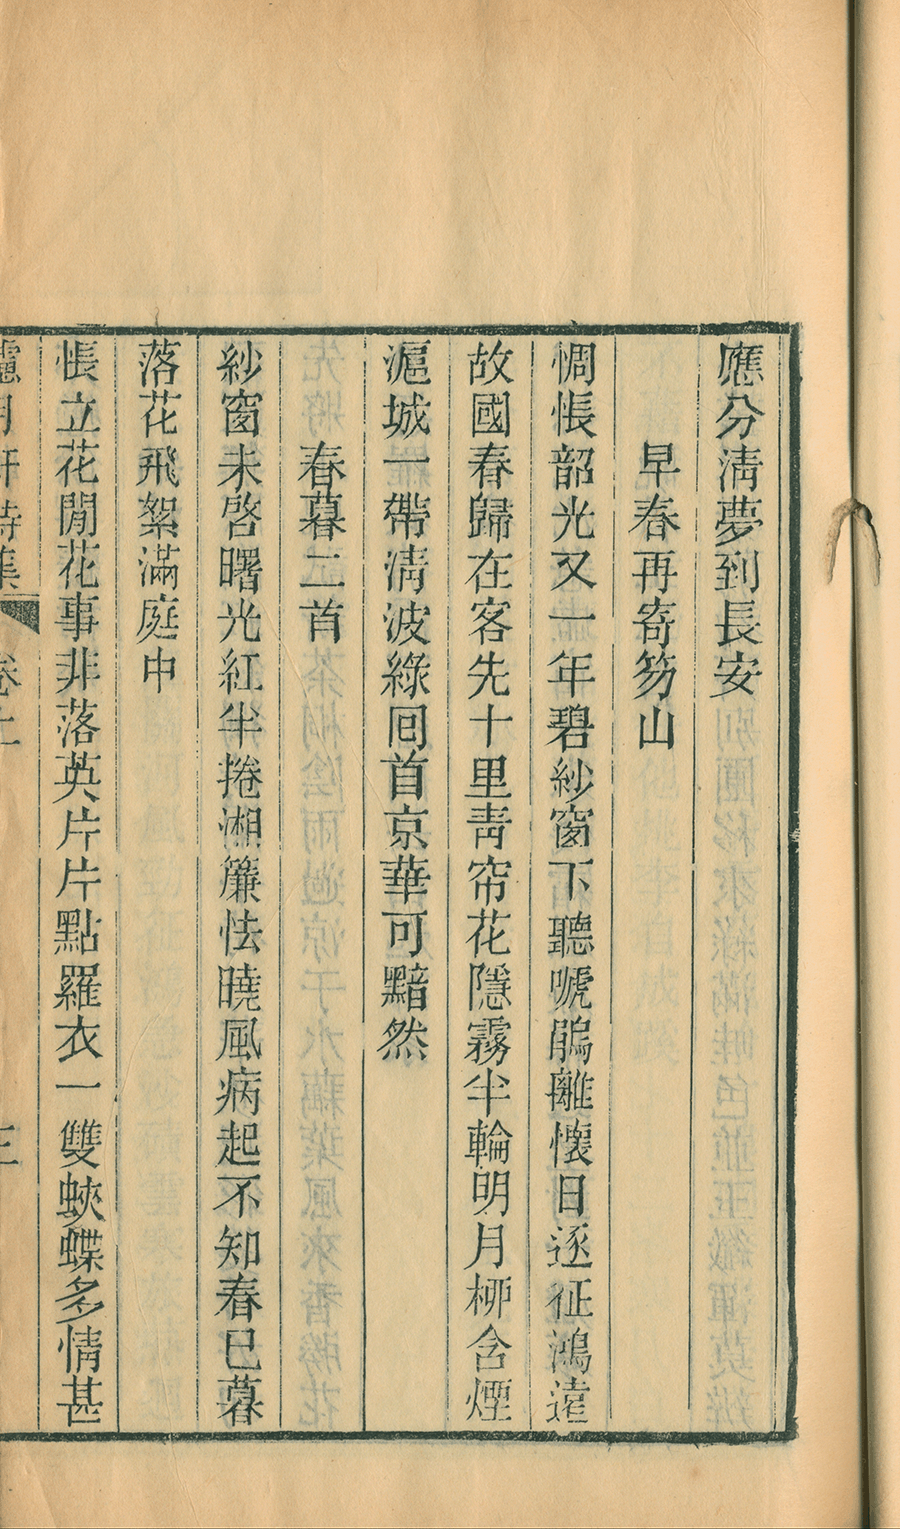 應分清夢到長安
早春再寄笏山
惆悵韶光又一年碧紗窗下聽嗁鵑離懷日逐征鴻遠
故國春歸在客先十里靑帘花隱霧半輪明月柳含煙
滬城一帶清波綠囘首京華可黯然
春暮二首
紗窗未啓曙光紅半捲湘簾怯曉風病起不知春已暮
落花飛絮滿庭中
悵立花閒花事非落英片片點羅衣一雙蛺蝶多情甚
月軒詩集 卷上 三